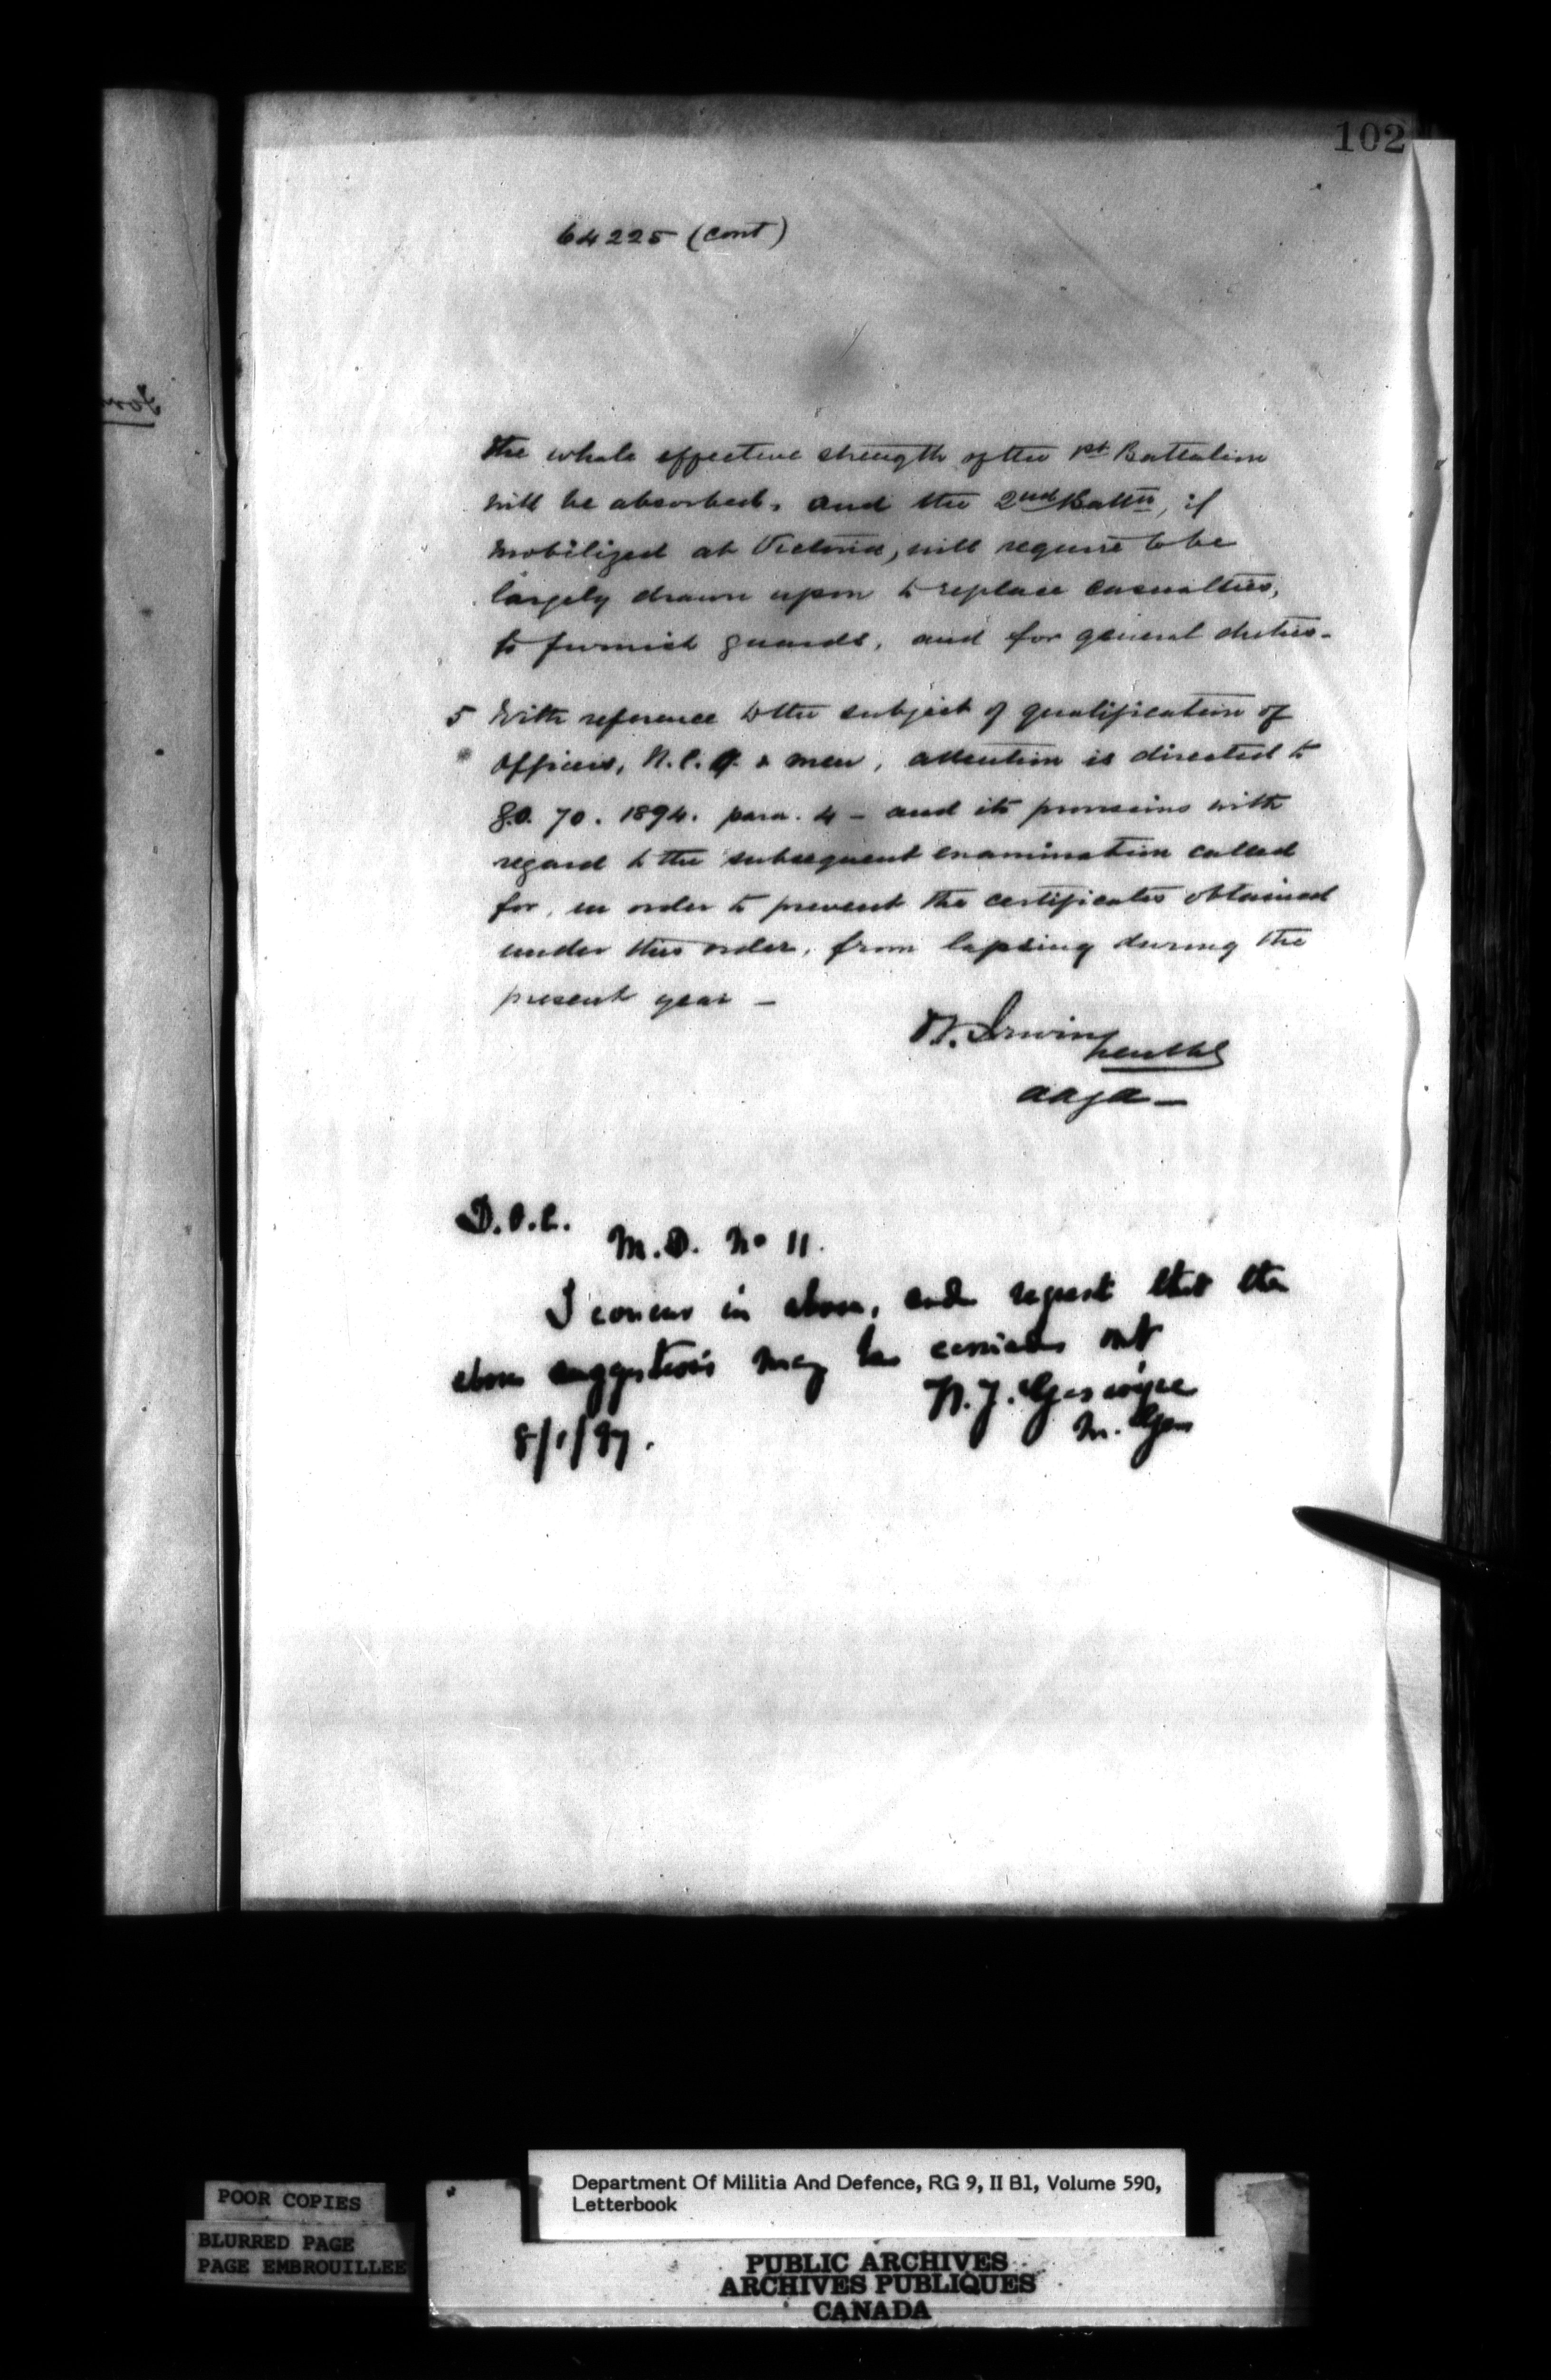 102
64225 (Cont)
the whole effective strength of the 1st Battalion
will be absorbed, and the 2nd Battn, if
mobilized at Victoria, will require to be
largely drawn upon to replace casualties,
to furnish guards, and for general duties-
5 With reference to the subject of qualification of
Officers, N.C.O. & men, attention is directed to
G.O. 70. 1894. para. 4 - and its provisions with
regard to the subsequent examination called
for, in order to prevent the certificates obtained
under this order, from lapsing during the
present year -
Irwin
AAGA -
D.O.C.
M.D. No 11.
I concur in above, and request that the
above suggestions may be carried out
W.J. Gascoigne
M. Gen
8/1/97.
POOR COPIES
BLURRED PAGE
PAGE EMBROUILLEE
Department Of Militia And Defence, RG 9, II B1, Volume 590,
Letterbook
PUBLIC ARCHIVES
ARCHIVES PUBLIQUES
CANADA